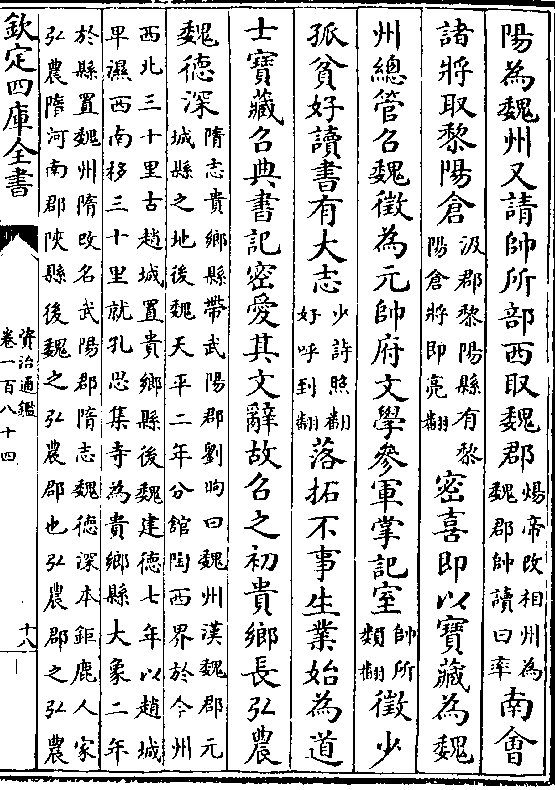 陽為魏州又請帥所部西取魏郡煬帝改相州為魏郡帥讀曰率南會
諸將取黎陽倉汲郡黎陽縣有黎陽倉將即亮翻密喜即以寶藏為魏
州總管召魏徵為元帥府文學參軍掌記室帥所類翻徵少
孤貧好讀書有大志少詩照翻好呼到翻落拓不事生業始為道
士寶藏召典書記密愛其文辭故召之初貴鄉長弘農
魏德深隋志貴鄉縣帶武陽郡劉昫曰魏州漢魏郡元城縣之地後魏天平二年分館陶西界於今州
西北三十里古趙城置貴鄉縣後魏建德七年以趙城卑濕西南移三十里就孔思集寺為貴鄉縣大象二年
於縣置魏州隋改名武陽郡隋志魏德深本鉅鹿人家弘農隋河南郡陝縣後魏之弘農郡也弘農郡之弘農
欽定四庫全書
資治通鑑
卷一百八十四
十八